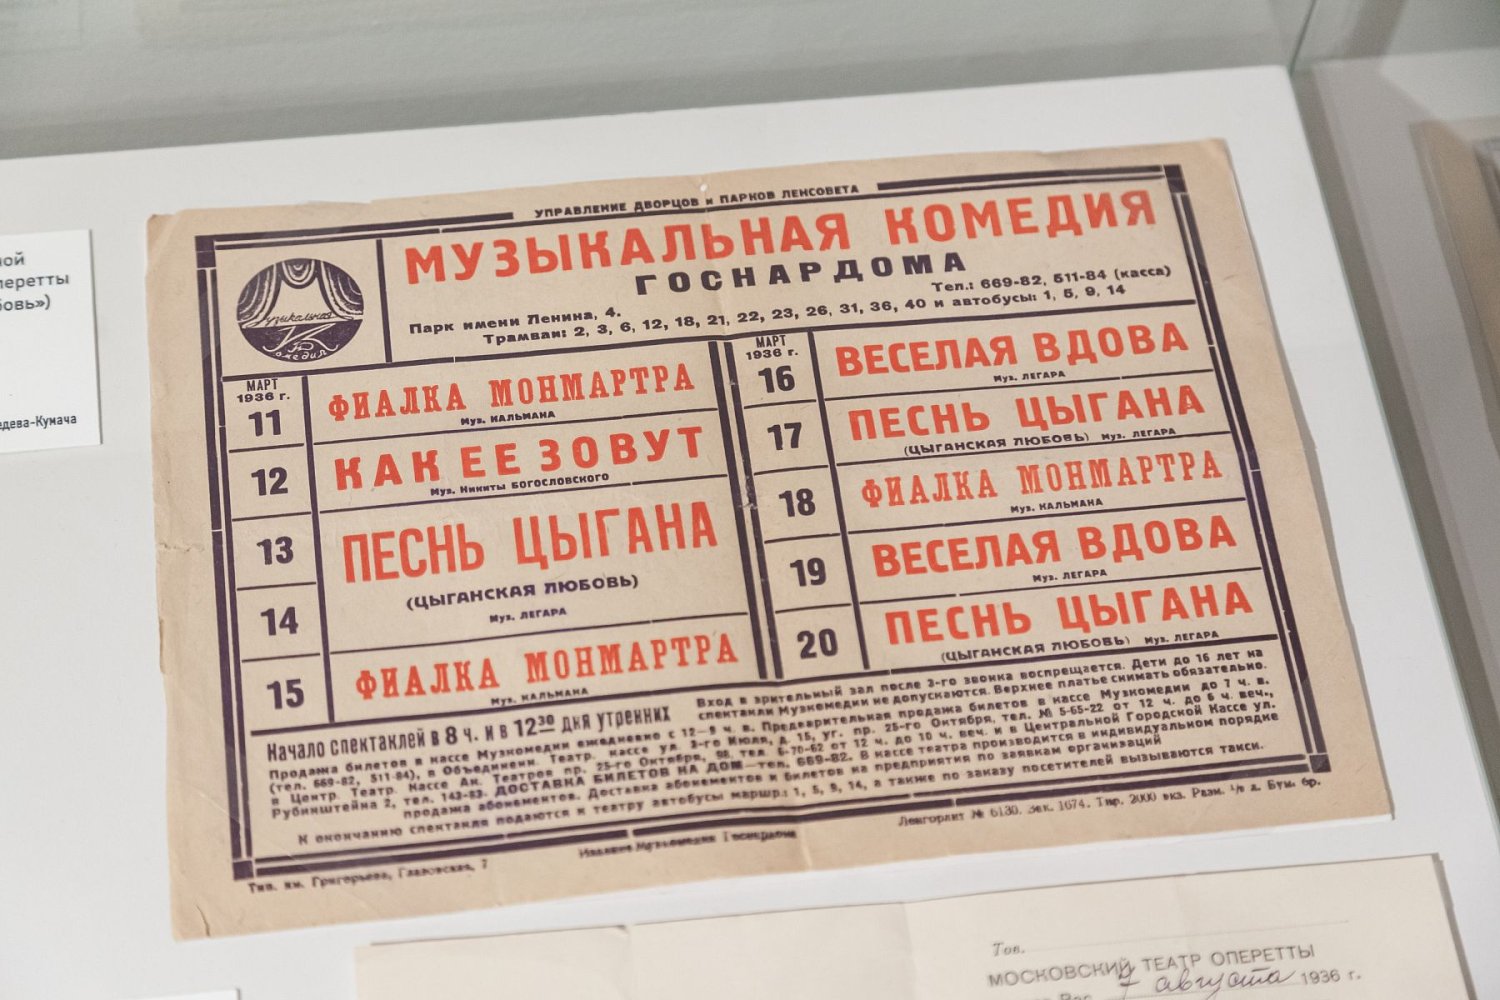 УПРАВЛЕНИЕ ДВОРЦОВ и ПАРКОВ ЛЕНСОВЕТА
МУЗЫКАЛЬНАЯ КОМЕДИЯ
ГОСНАРДОМА
Парк имени Ленина, 4.
Тел.: 669-82, 511-84 (касса)
Трамваи: 2, 3, 6, 12, 18, 21, 22, 23, 26, 31, 36, 40 и автобусы: 1, 5, 9, 14
Музыкальная
Комедия
МАРТ
1936 г.
11
ФИАЛКА МОНМАРТРА
Муз. КАЛЬМАНА
12
КАК ЕЕ ЗОВУТ
Муз. Никиты БОГОСЛОВСКОГО
13
ПЕСНЬ ЦЫГАНА
(ЦЫГАНСКАЯ ЛЮБОВЬ)
Муз. ЛЕГАРА
14
15
ФИАЛКА МОНМАРТРА
Муз. КАЛЬМАНА
МАРТ
1936 г.
16
ВЕСЕЛАЯ ВДОВА
Муз. ЛЕГАРА
17
ПЕСНЬ ЦЫГАНА
(ЦЫГАНСКАЯ ЛЮБОВЬ) Муз. ЛЕГАРА
18
ФИАЛКА МОНМАРТРА
Муз. КАЛЬМАНА
19
ВЕСЕЛАЯ ВДОВА
Муз. ЛЕГАРА
20
ПЕСНЬ ЦЫГАНА
(ЦЫГАНСКАЯ ЛЮБОВЬ) Муз. ЛЕГАРА
Начало спектаклей в 8 ч. и в 12 30 дня утренних
Вход в зрительный зал после 3-го звонка воспрещается. Дети до 16 лет на
спектакли Музкомедии не допускаются. Верхнее платье снимать обязательно.
Продажа билетов в кассе Музкомедии ежедневно с 12—9 ч. в. Предварительная продажа билетов в кассе Музкомедии до 7 ч. в.
(тел. 669-82, 511-84), в Объединенн. Театр. кассе ул. 3-го Июля, д. 15, уг. пр. 25-го Октября, тел. № 5-65-22 от 12 ч. до 6 ч. веч.,
в Центр. Театр. Кассе Ак. Театров пр. 25-го Октября, тел. 5-70-62 от 12 ч. до 10 ч. веч. и в Центральной Городской Кассе ул.
Рубинштейна 2, тел. 143-83. ДОСТАВКА БИЛЕТОВ НА ДОМ—тел. 669-82. В кассе театра производится в индивидуальном порядке
продажа абонементов. Доставка абонементов и билетов на предприятия по заявкам организаций
К окончанию спектакля подаются к театру автобусы маршр.: 1, 5, 9, 14, а также по заказу посетителей вызываются такси.
Тип. им. Григорьева, Глазовская, 7
Издание Музкомедии Госнардома
Ленгорлит № 6130. Зак. 1674. Тир. 2000 экз. Разм. 1/8 л. Бум. бр.
ной
перетты
овь»)
едева-Кумача
Тов.
МОСКОВСКИЙ ТЕАТР ОПЕРЕТТЫ
7 августа 1936 г.